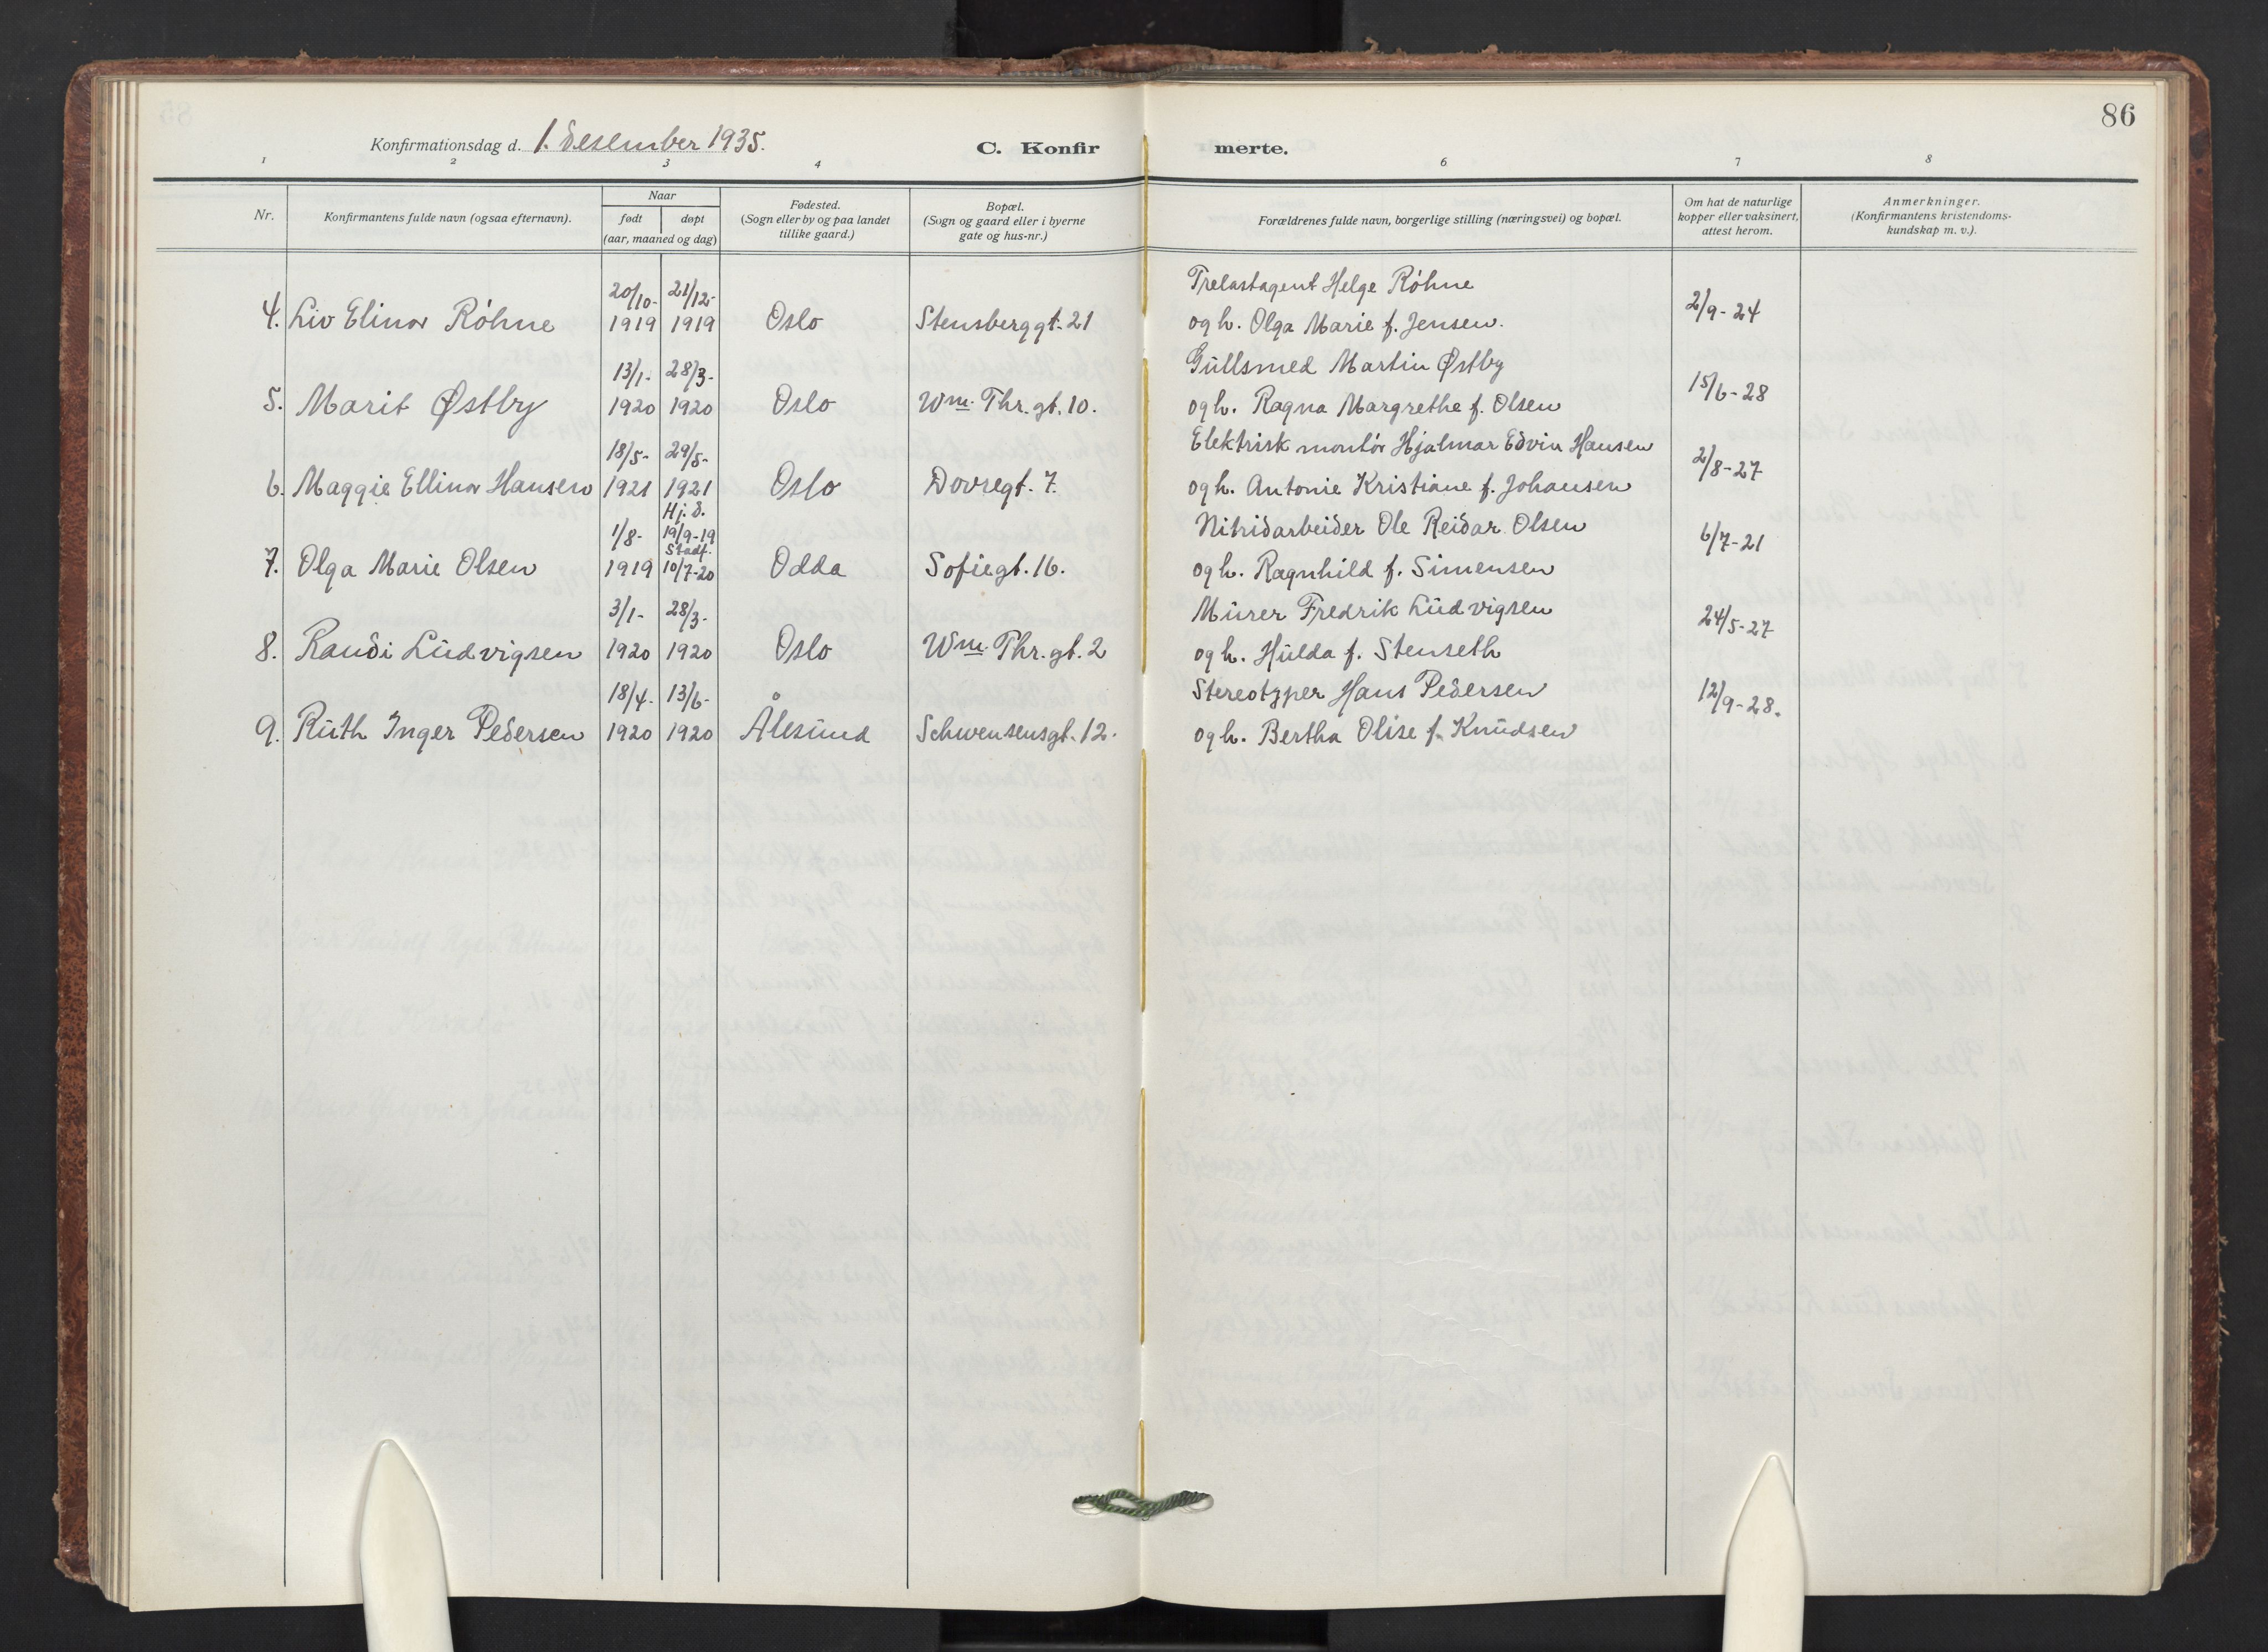 86
Konfirmationsdag d. 1. desember 1935.
C. Konfir merte.
1 2 3 4 6 7 8
Nr.
Konfirmantens fulde navn (ogsaa efternavn).
Naar
født døpt
(aar, maaned og dag)
Fødested.
(Sogn eller by og paa landet
tillike gaard.)
Bopæl.
(Sogn og gaard eller i byerne
gate og hus-nr.)
Forældrenes fulde navn, borgerlige stilling (næringsvei) og bopæl.
Om hat de naturlige
kopper eller vaksinert,
attest herom.
Anmerkninger.
(Konfirmantens kristendoms-
kundskap m. v.).
20/10- 21/12- Trelastagent Helge Röhne
4. Liv Elinor Röhne 1919 1919 Oslo Stensberggt. 21 og h. Olga Marie f. Jensen. 2/9-24
13/1- 28/3- Gullsmed Martin Østby
5. Marit Østby 1920 1920 Oslo Wm. Thr. gt. 10. og h. Ragna Margrethe f. Olsen 15/6-28
18/5- 29/5- Elektrisk montör Hjalmar Edvin Hansen
6. Maggie Ellinor Hansen 1921 1921 Oslo Dovregt. 7. og h. Antonie Kristiane f. Johansen 2/8-27
Hj. d.
1/8- 19/9-19 Nitridarbeider Ole Reidar Olsen
Stadf.
7. Olga Marie Olsen 1919 10/7-20 Odda Sofiegt. 16. og h. Ragnhild f. Simensen 6/7-21
3/1- 28/3- Murer Fredrik Ludvigsen
8. Randi Ludvigsen 1920 1920 Oslo Wm. Thr. gt. 2 og h. Hulda f. Stenseth 24/5-27
18/4- 13/6- Stereotyper Hans Pedersen
9. Ruth Inger Pedersen 1920 1920 Ålesund Schwensensgt. 12. og h. Bertha Olise f. Knudsen 12/9-28.